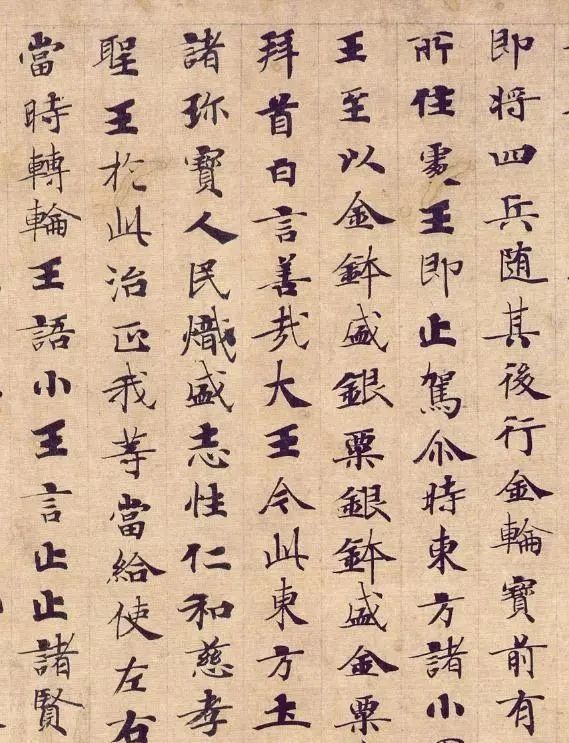 即将四兵随其後行金輪寶前有
所住處王即止駕尒時東方諸小
王至以金鉢盛銀粟銀鉢盛金粟
拜首白言善哉大王今此東方土
諸珎寶人民熾盛志性仁和慈孝
聖王於此治正我等當給使左右
當時轉輪王語小王言止止諸賢